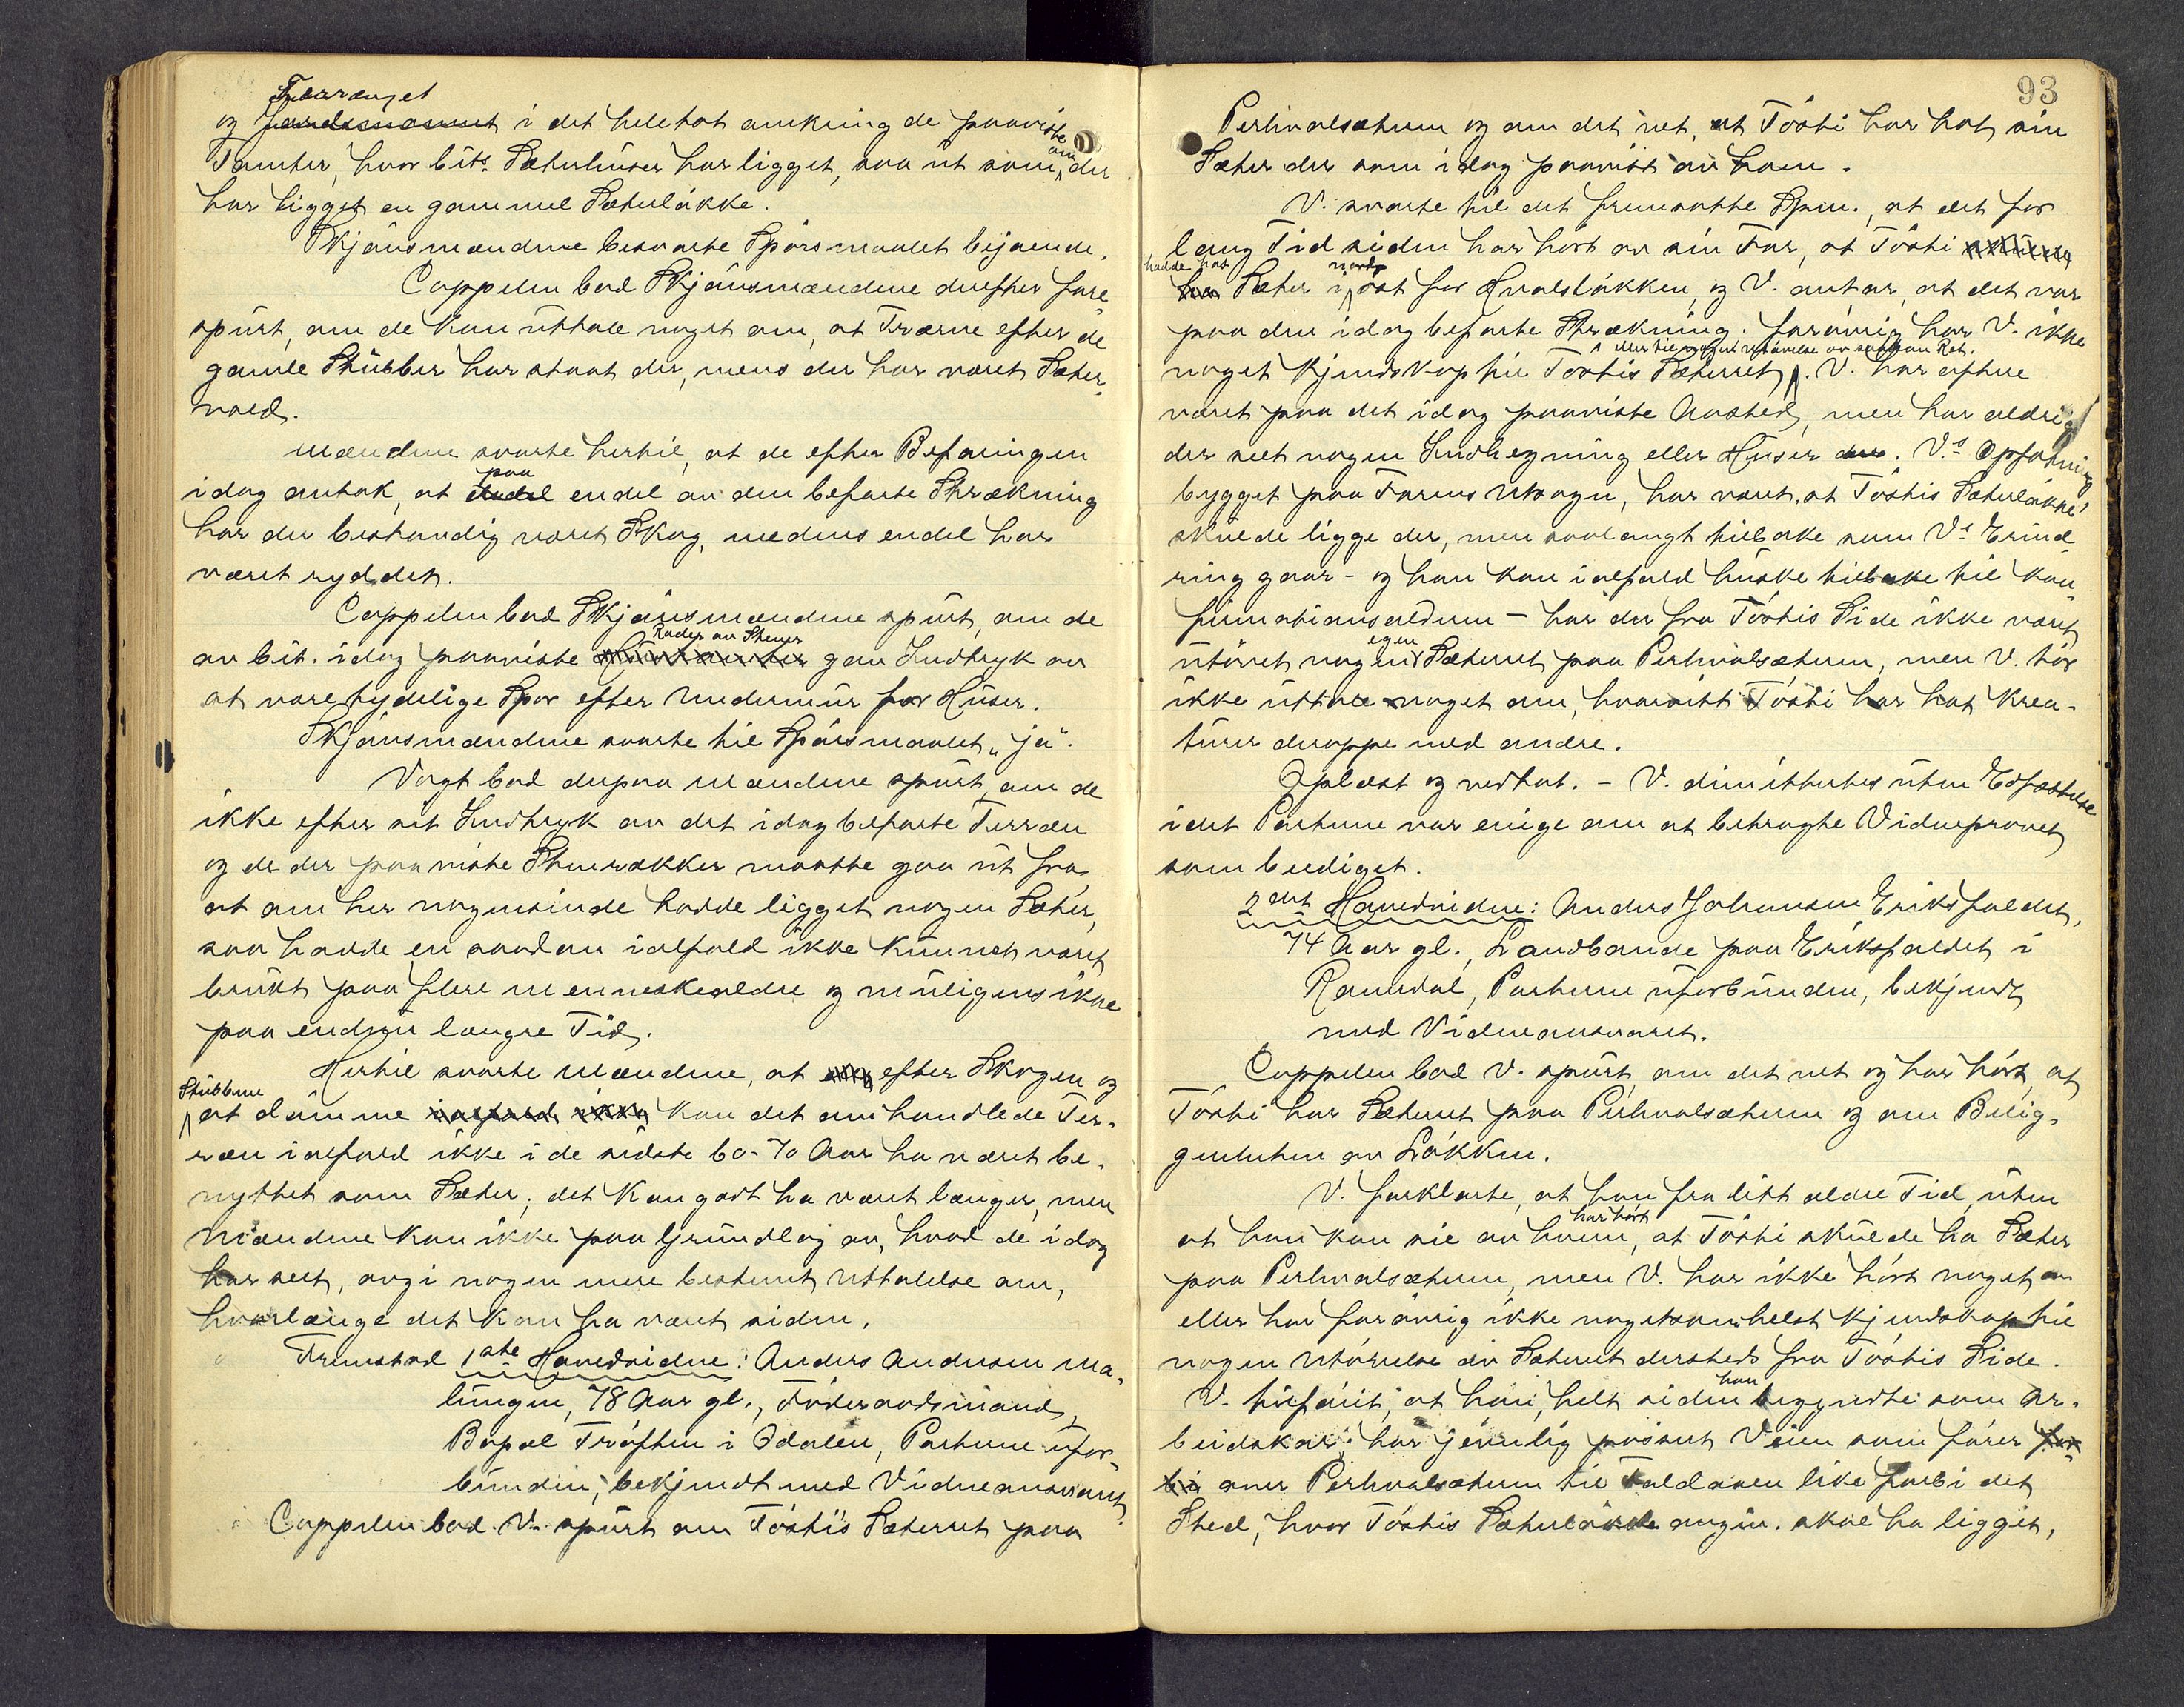 Terrænget
og jordsmonnet i det heletat omkring de paaviste
Tomter, hvor Cits. Sæterhuser har ligget, saa ut som om der
har ligget en gammel Sæterløkke.
Skjønsmændene besvarte Spørsmaalet bejaende.
Cappelen bad Skjønsmændene derefter fore-
spurt, om de kan uttale noget om, at Trærne efter de
gamle Stubber har staat der, mens der har været Sæter-
vold.
Mændene svarte hertil, at de efter Befaringen
idag antok, at paa endel endel av den befarte Strækning
har der bestandig været Skog, medens endel har
været ryddet.
Cappelen bad Skjønsmændene spurt, om de
av Cit. idag paaviste Rader av Stener gav Indtryk av
at være tydelige Spor efter Undermur for Huser.
Skjønsmændene svarte til Spørsmaalet „ja".
Vogt bad derpaa Mændene spurt, om de
ikke efter sit Indtryk av det idag befarte Terræn
og de der paaviste Stenrækker maatte gaa ut fra,
at om her nogensinde hadde ligget nogen Sæter,
saa hadde en saadan ialfald ikke kunnet været
brukt paa flere Menneskealdre og muligens ikke
paa endnu længre Tid.
Hertil svarte Mændene, at efter Skogen og
Stubbene
at dømme ialfald ikke kan det omhandlede Ter-
ræn ialfald ikke i de sidste 60-70 Aar ha været be-
nyttet som Sæter; det kan godt ha været længer, men
Mændene kan ikke paa Grundlag av, hvad de idag
har seet, avgi nogen mere bestemt Uttalelse om,
hvorlænge det kan ha været siden.
Fremstod 1ste Hovedvidne: Anders Andersen Ma-
lungen, 78 Aar gl., Føderaadsmand,
Bopæl Trøften i Odalen, Parterne ufor-
bunden, bekjendt med Vidneansvaret.
Cappelen bad V. spurt om Tøstis Sæterret paa
93
Perhvalsæteren og om det vet, at Tøsti har hat sin
Sæter der som idag paavist av ham.
V. svarte til det fremsatte Spm., at det for
lang Tid siden har hørt av sin Far, at Tøsti
hadde hat nord
Sæter i øst for Hvalsløkken, og V. antar, at det var
paa den idag befarte Strækning. Forøvrig har V. ikke
eller til nogen utøvelse av saadan Ret.
noget Kjendskap til Tøstis Sæterret. V. har oftere
været paa det idag paaviste Aasted, men har aldrig
der seet nogen Indhegning eller Huser der. V.s Opfatning
bygget paa Farens Utsagn, har været, at Tøstis Sæterløkke
skulde ligge der, men saalangt tilbake som V.s Erind-
ring gaar - og han kan ialfald huske tilbake til kon-
firmationsalderen - har der fra Tøstis Side ikke været
utøvet nogen egen Sæterret paa Perhvalsæteren, men V. tør
ikke uttale noget om, hvorvitt Tøsti har hat Krea-
turer deroppe med andre.
Oplæst og vedtat. - V. dimitteres uten Edfæstelse
idet Parterne var enige om at betragte Vidneprovet
som beediget.
2det Hovedvidne: Anders Johansen Eriksfaldet,
74 Aar gl., Landbonde paa Eriksfaldet i
Romedal, Parterne uforbunden, bekjendt
med Vidneansvaret.
Cappelen bad V. spurt, om det vet og har hørt, at
Tøsti har Sæterret paa Perhvalsæteren og om Belig-
genheten av Løkken.
V. forklarte, at han fra litt ældre Tid, uten
at han kan sie av hvem, har hørt at Tøsti skulde ha Sæter
paa Perhvalsæteren, men V. har ikke hørt noget om
eller har forøvrig ikke nogetsomhelst Kjendskap til
nogen Utøvelse av Sæterret dersteds fra Tøstis Side.
V. tilføiet, at han, helt siden han begyndte som Ar-
beidskar, har jevnlig passert Veien som fører for-
bi over Perhvalsæteren til Faldaaen like forbi det
Sted, hvor Tøstis Sæterløkke angiv. skal ha ligget,